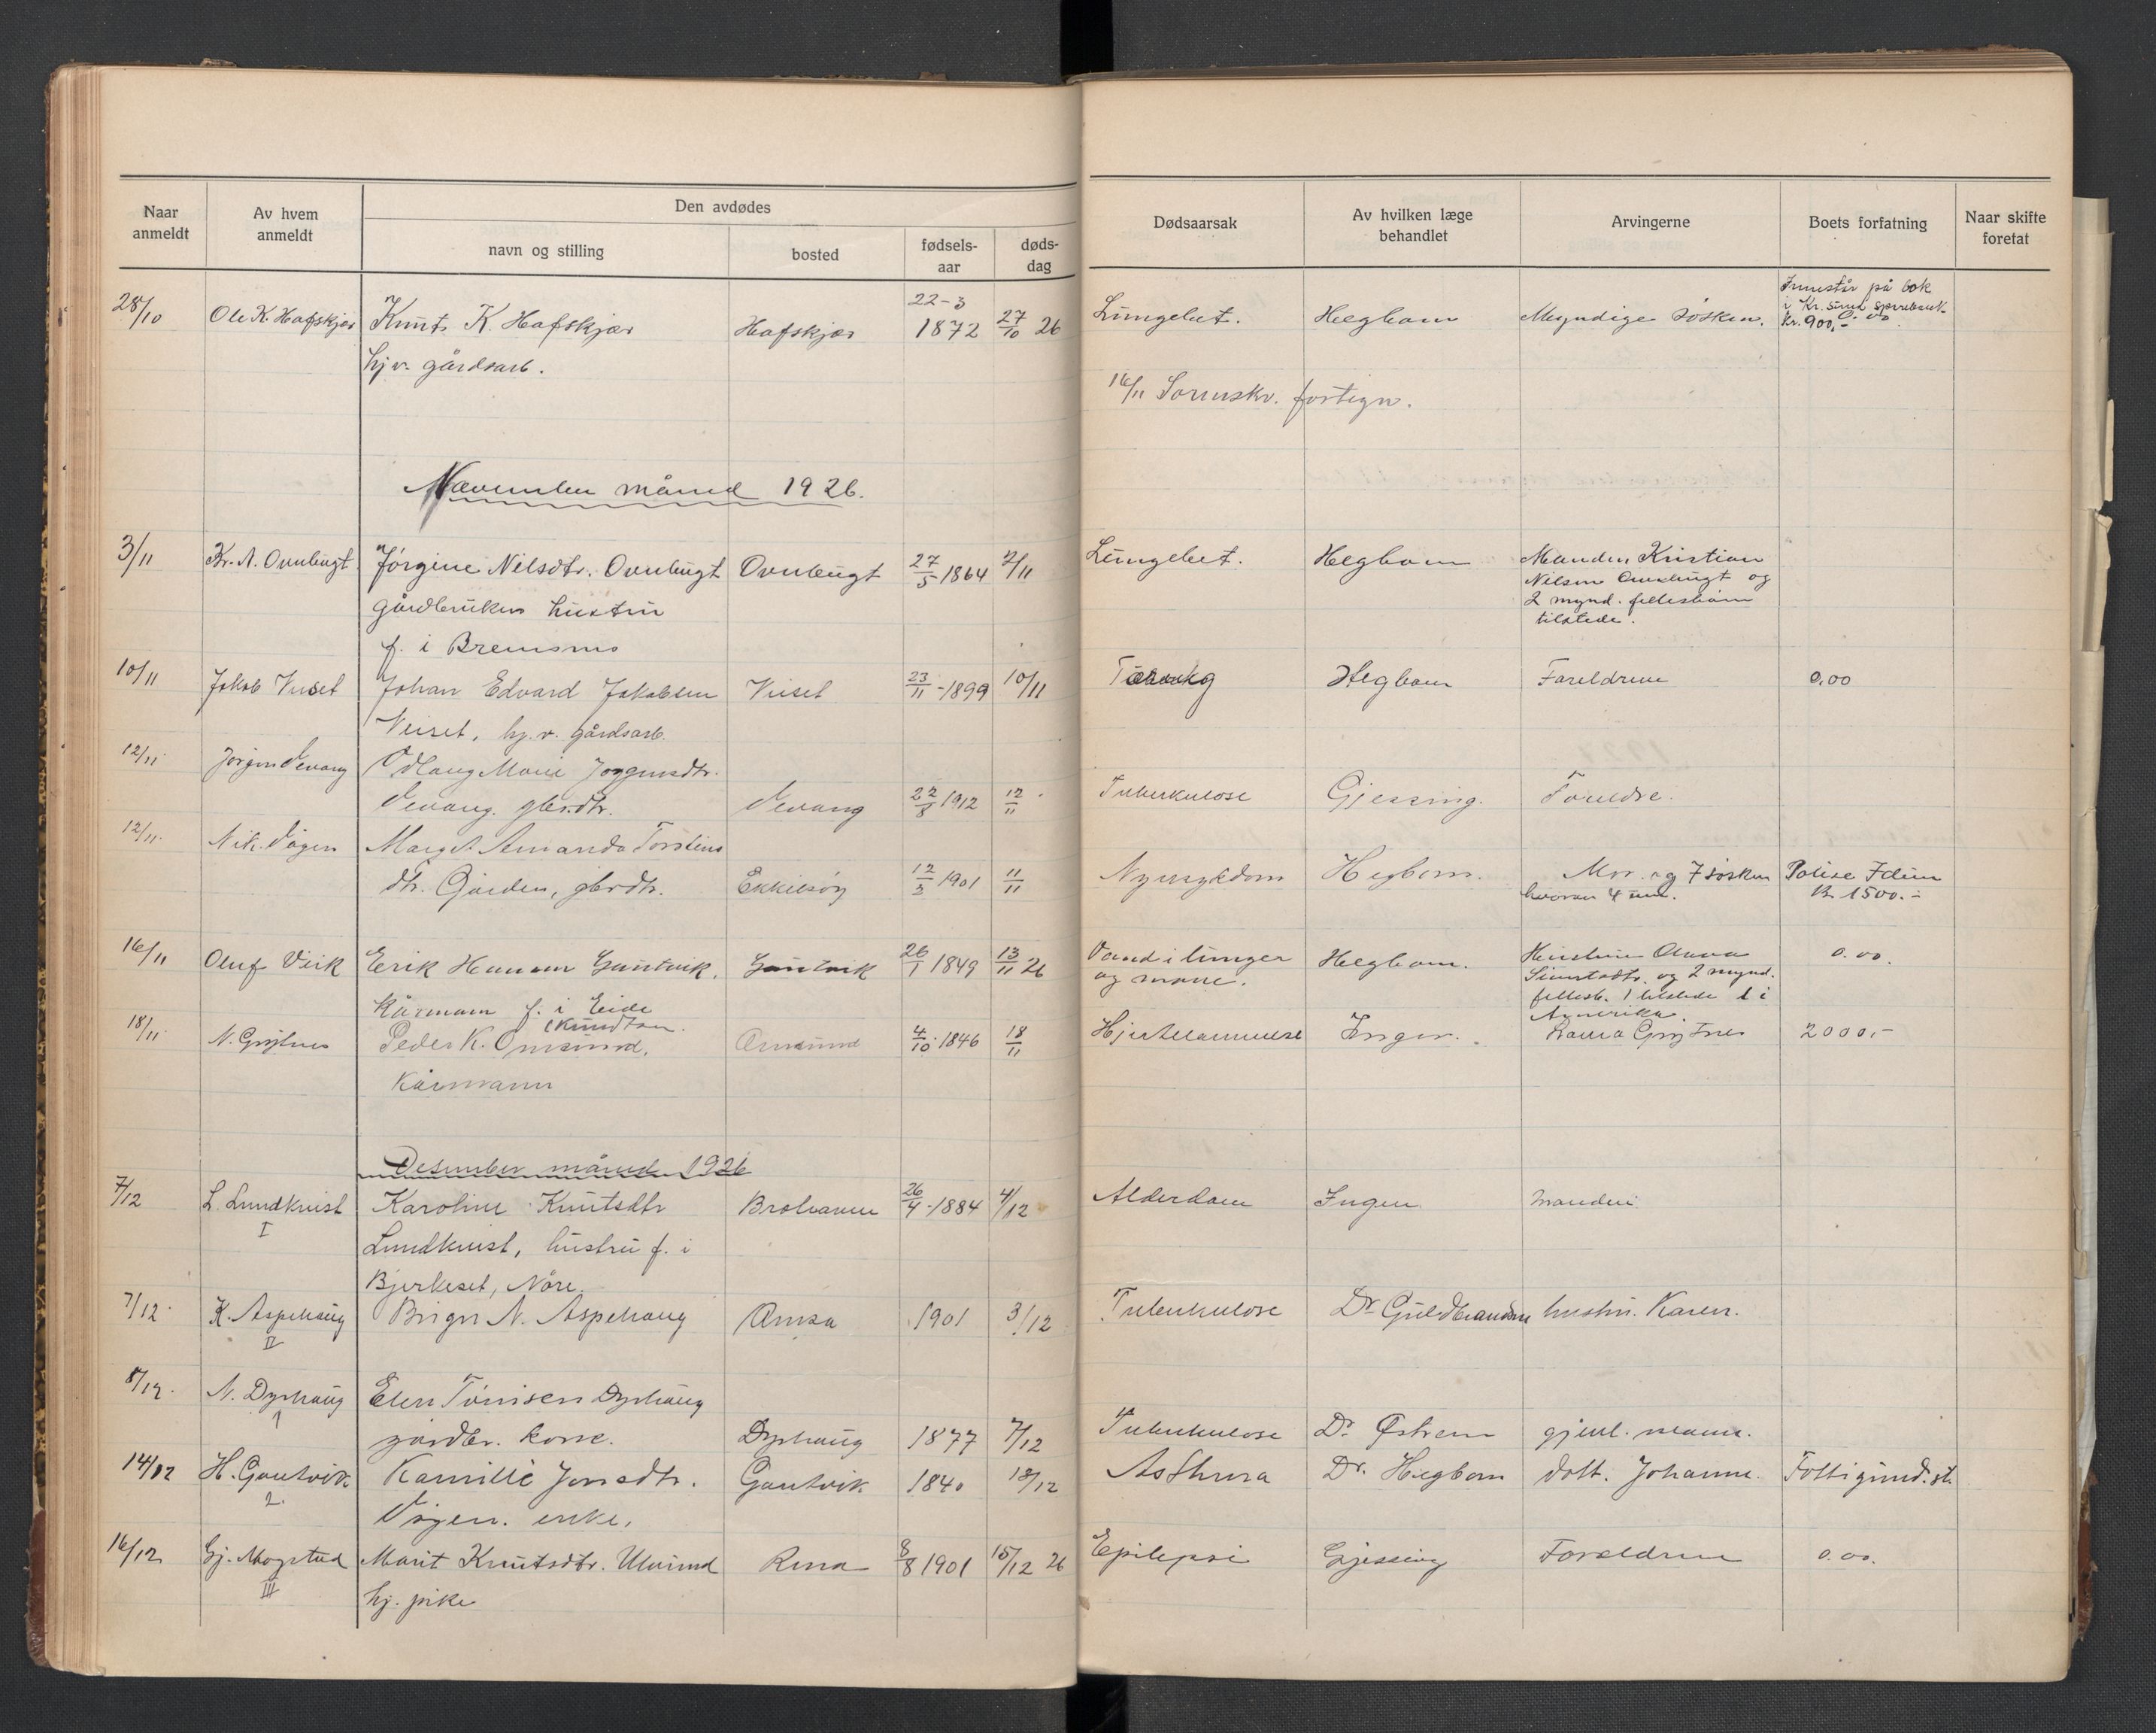 Naar anmeldt
Av hvem anmeldt
Den avdødes
navn og stilling
bosted
fødsels-aar
døds-dag
Dødsaarsak
Av hvilken læge behandlet
Arvingerne
Boets forfatning
Naar skifte foretat
28/10 Ole K. Hafskjær Knut K. Hafskjær Hafskjær 22-3 1872 27/10 26 Lungebet. Hegbom Myndige søsken. Innestår på bok
i Kr.sund sparebank
Kr. 900,-
hj.v. gårdsarb.
16/11 Sorenskr. fortegn.
November måned 1926.
3/11 Kr. N. Ovnbugt Jørgine Nilsdtr. Ovnbugt Ovnbugt 27/5 1864 2/11 Lungebet. Hegbom Manden Kristian
gårdbrukers hustru Nilsen Ovnbugt og
2 mynd. fellesbarn
f. i Bremsnes tilstede.
10/11 Jakob Vuset Johan Edvard Jakobsen Vuset 23/11-1899 10/11 Hegbom Foreldrene 0,00
Vuset, hj. v. gårdsarb.
12/11 Jørgen Sevang Odlaug Marie Jørgensdtr.
Sevang. gbr.dtr. Sevang 22/8 1912 12/11 Tuberkulose Gjessing. Foreldre.
12/11. Nik. Vågen Marget Amanda Torstens
dtr. Gården, gbrdtr. Ekkilsøy 12/3 1901 11/11 Nyresykdom Hegbom. Mor og 7 søsken Polise Idun
hvorav 4 um. Kr. 1500.-
16/11 Oluf Vik Erik Hansen Gautvik. Gautvik 26/1 1849 13/11 26 Vand i lunger Hegbom. Hustruen 0.00.
og mave. og 2 mynd.
kårmann f. i Eide fellesb. 1 tilstede 1 i
Amerika.
(Knudtsen.
18/11 N. Grytnes Peder K. Omsund. Omsund 4/10-1846 18/11 Hjertelammelse Ingen. Laura Grytnes 2000,-
Kårmann
Desember måned 1926
7/12 L. Lundkvist Karoline Knutsdtr Brohavn 26/4-1884 4/12 Alderdom Ingen manden
I Lundkvist, hustru f. i
Bjerkeset, Nåre
7/12. K. Aspehaug Birger N. Aspehaug Omsa 1901 3/12 Tuberkulose Dr Guldbrandsen hustru. Karen.
II
8/12. N. Dyrhaug Elen Tønisen Dyrhaug
1 gårdbr. kone. Dyrhaug 1877 7/12 Tuberkulose Dr. Østrem gjenl. mann.
14/12 H. Gautvik Kamille Jonsdtr. Gautvik 1840 13/12 Asthma Dr. Hegbom dott. Johanne
2. Vågen. enke.
16/12 Gj. Mogstad Marit Knutsdtr. Ulvund Rena 8/8 1901 15/12 26 Epilepsi Gjessing Foreldrene 0.00.
III hj. pike